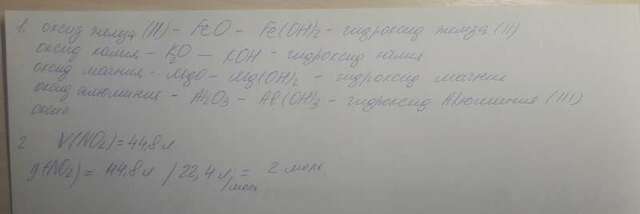 1. оксид железа (II) - FeO - Fe(OH)₂ - гидроксид железа (II)
оксид калия - K₂O - KOH - гидроксид калия
оксид магния - MgO - Mg(OH)₂ - гидроксид магния
оксид алюминия - Al₂O₃ - Al(OH)₃ - гидроксид Алюминия (III)
окси
2 V(NO₂) = 44,8 л
(NO₂) = 44,8 л / 22,4 л/моль = 2 моль